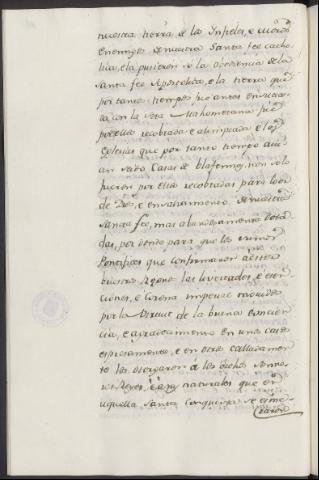 nuestra tierra, de los Infieles, e crueles
enemigos de nuestra Santa fee catho
lica, e la pusieron so la obediencia de la
Santa fee Apostolica, e la tierra que
por tantos tiempos, y
con la Seta Mahometana fue
por ellos recobrada e alimpiada, e las
Iglesias que por tanto tiempo avi
an sido Casas de blasfemia, non solo
fueron por ellos recobradas para loor
de Dios, e ensalzamiento de nuestra
Santa fee, mas abundosamente dota
das, por donde para que los
Pontifices que confirmaron
buestros Reynos las livertades, e exen
ciones, e Corona movidos
por la Virtud de la buena concien
cia, e agradecimiento en unos casos
espresamente, e en otros calladamen
te las otorgaron a los dichos Seño
res Reyes, e a my naturales que en
aquella Santa Conquista se esme
raron